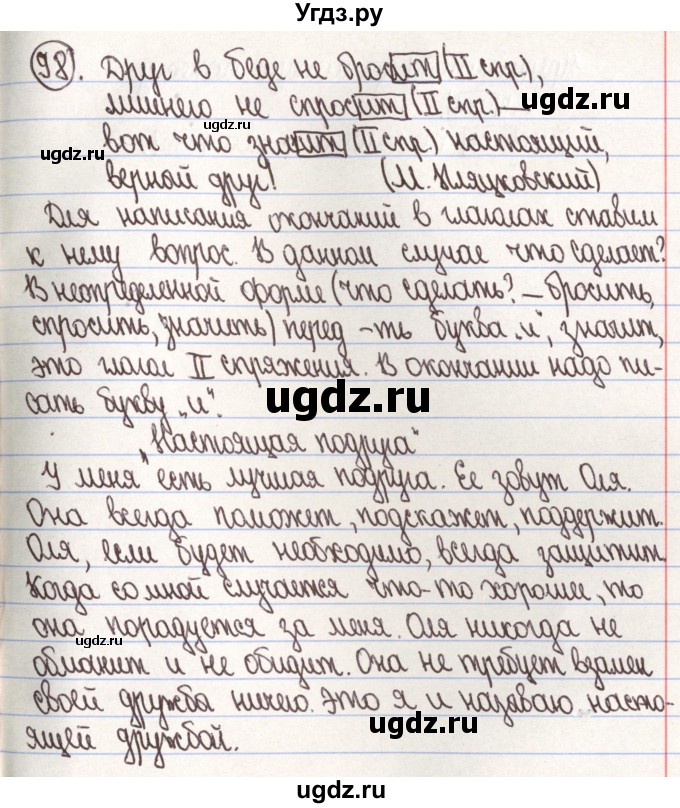 Угдз.ру
98. Друг в беде не бросит (II спр.),
лишнего не спросит (II спр.) —
вот что значит (II спр.) настоящий,
верной друг! (М. Пляцковский)
Для написания окончаний в глаголах ставим
к нему вопрос. В данном случае что сделает?
В неопределенной форме (что сделать? – бросить,
спросить, значить) перед -ть буква „и", значит,
это глагол II спряжения. В окончании надо пи-
сать букву „и".
„Настоящая подруга"
У меня есть лучшая подруга. Ее зовут Оля.
Она всегда поможет, подскажет, поддержит.
Оля, если будет необходимо, всегда защитит.
Когда со мной случается что-то хорошее, то
она порадуется за меня. Оля никогда не
обманит и не обидит. Она не требует взамен
своей дружба ничего. Это я и называю насто-
ящей дружбой.
ugdz.ru
ugdz.ru
ugdz.ru
ugdz.ru
ugdz.ru
ugdz.ru
ugdz.ru
ugdz.ru
ugdz.ru
ugdz.ru
ugdz.ru